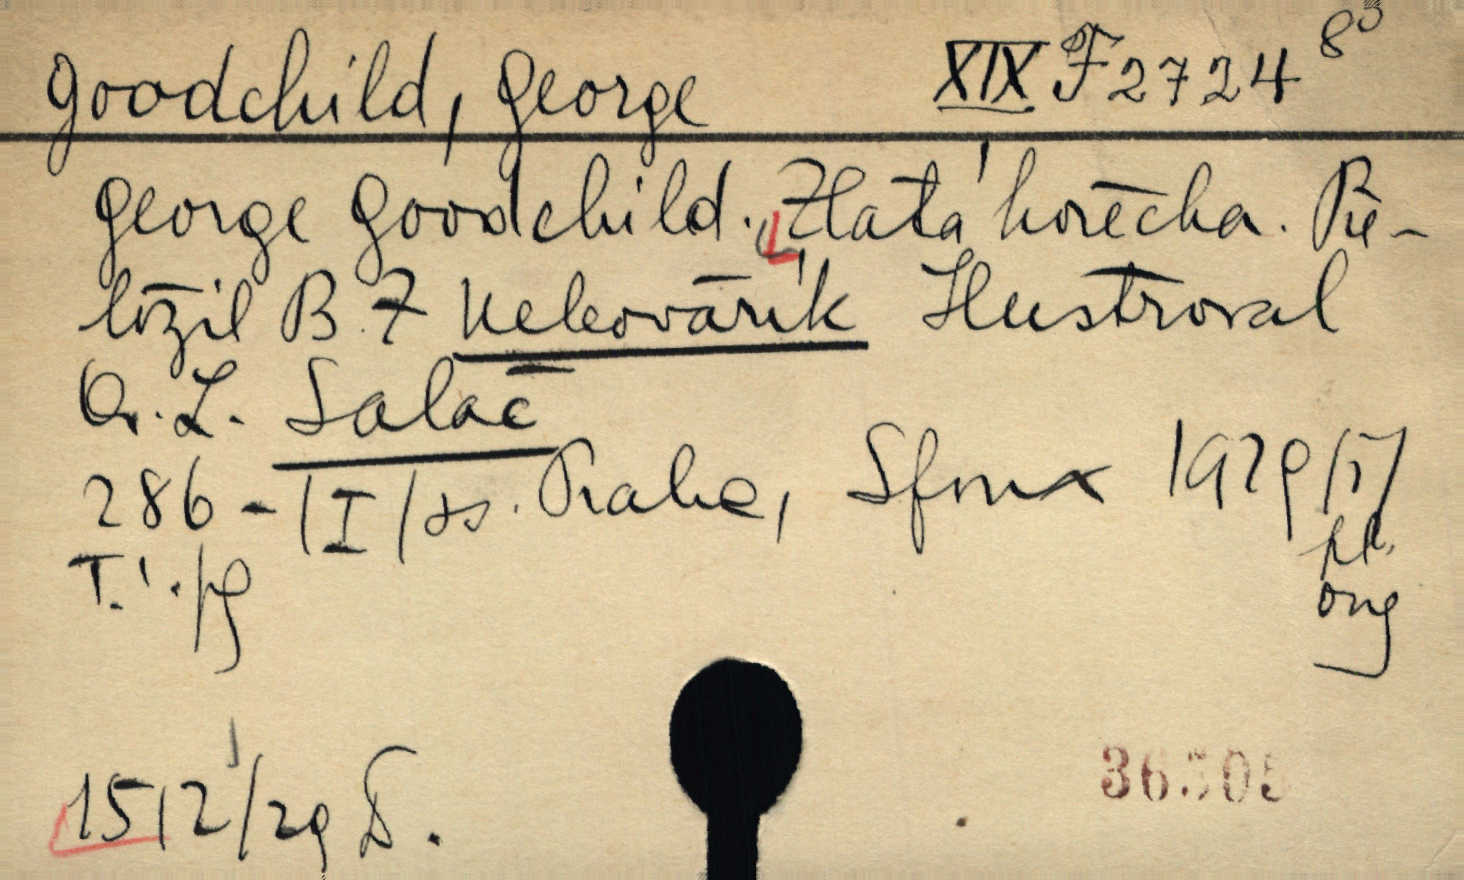 Goodchild, George XIX F 2724 8°
George Goodchild. Zlatá horečka. Pře-
ložil B. Z. Nekovařík Ilustroval
O. L. Salač
286 - /I/ ss. Praha, Sfinx 1929 /I/
T.
1512/29 D.
36305